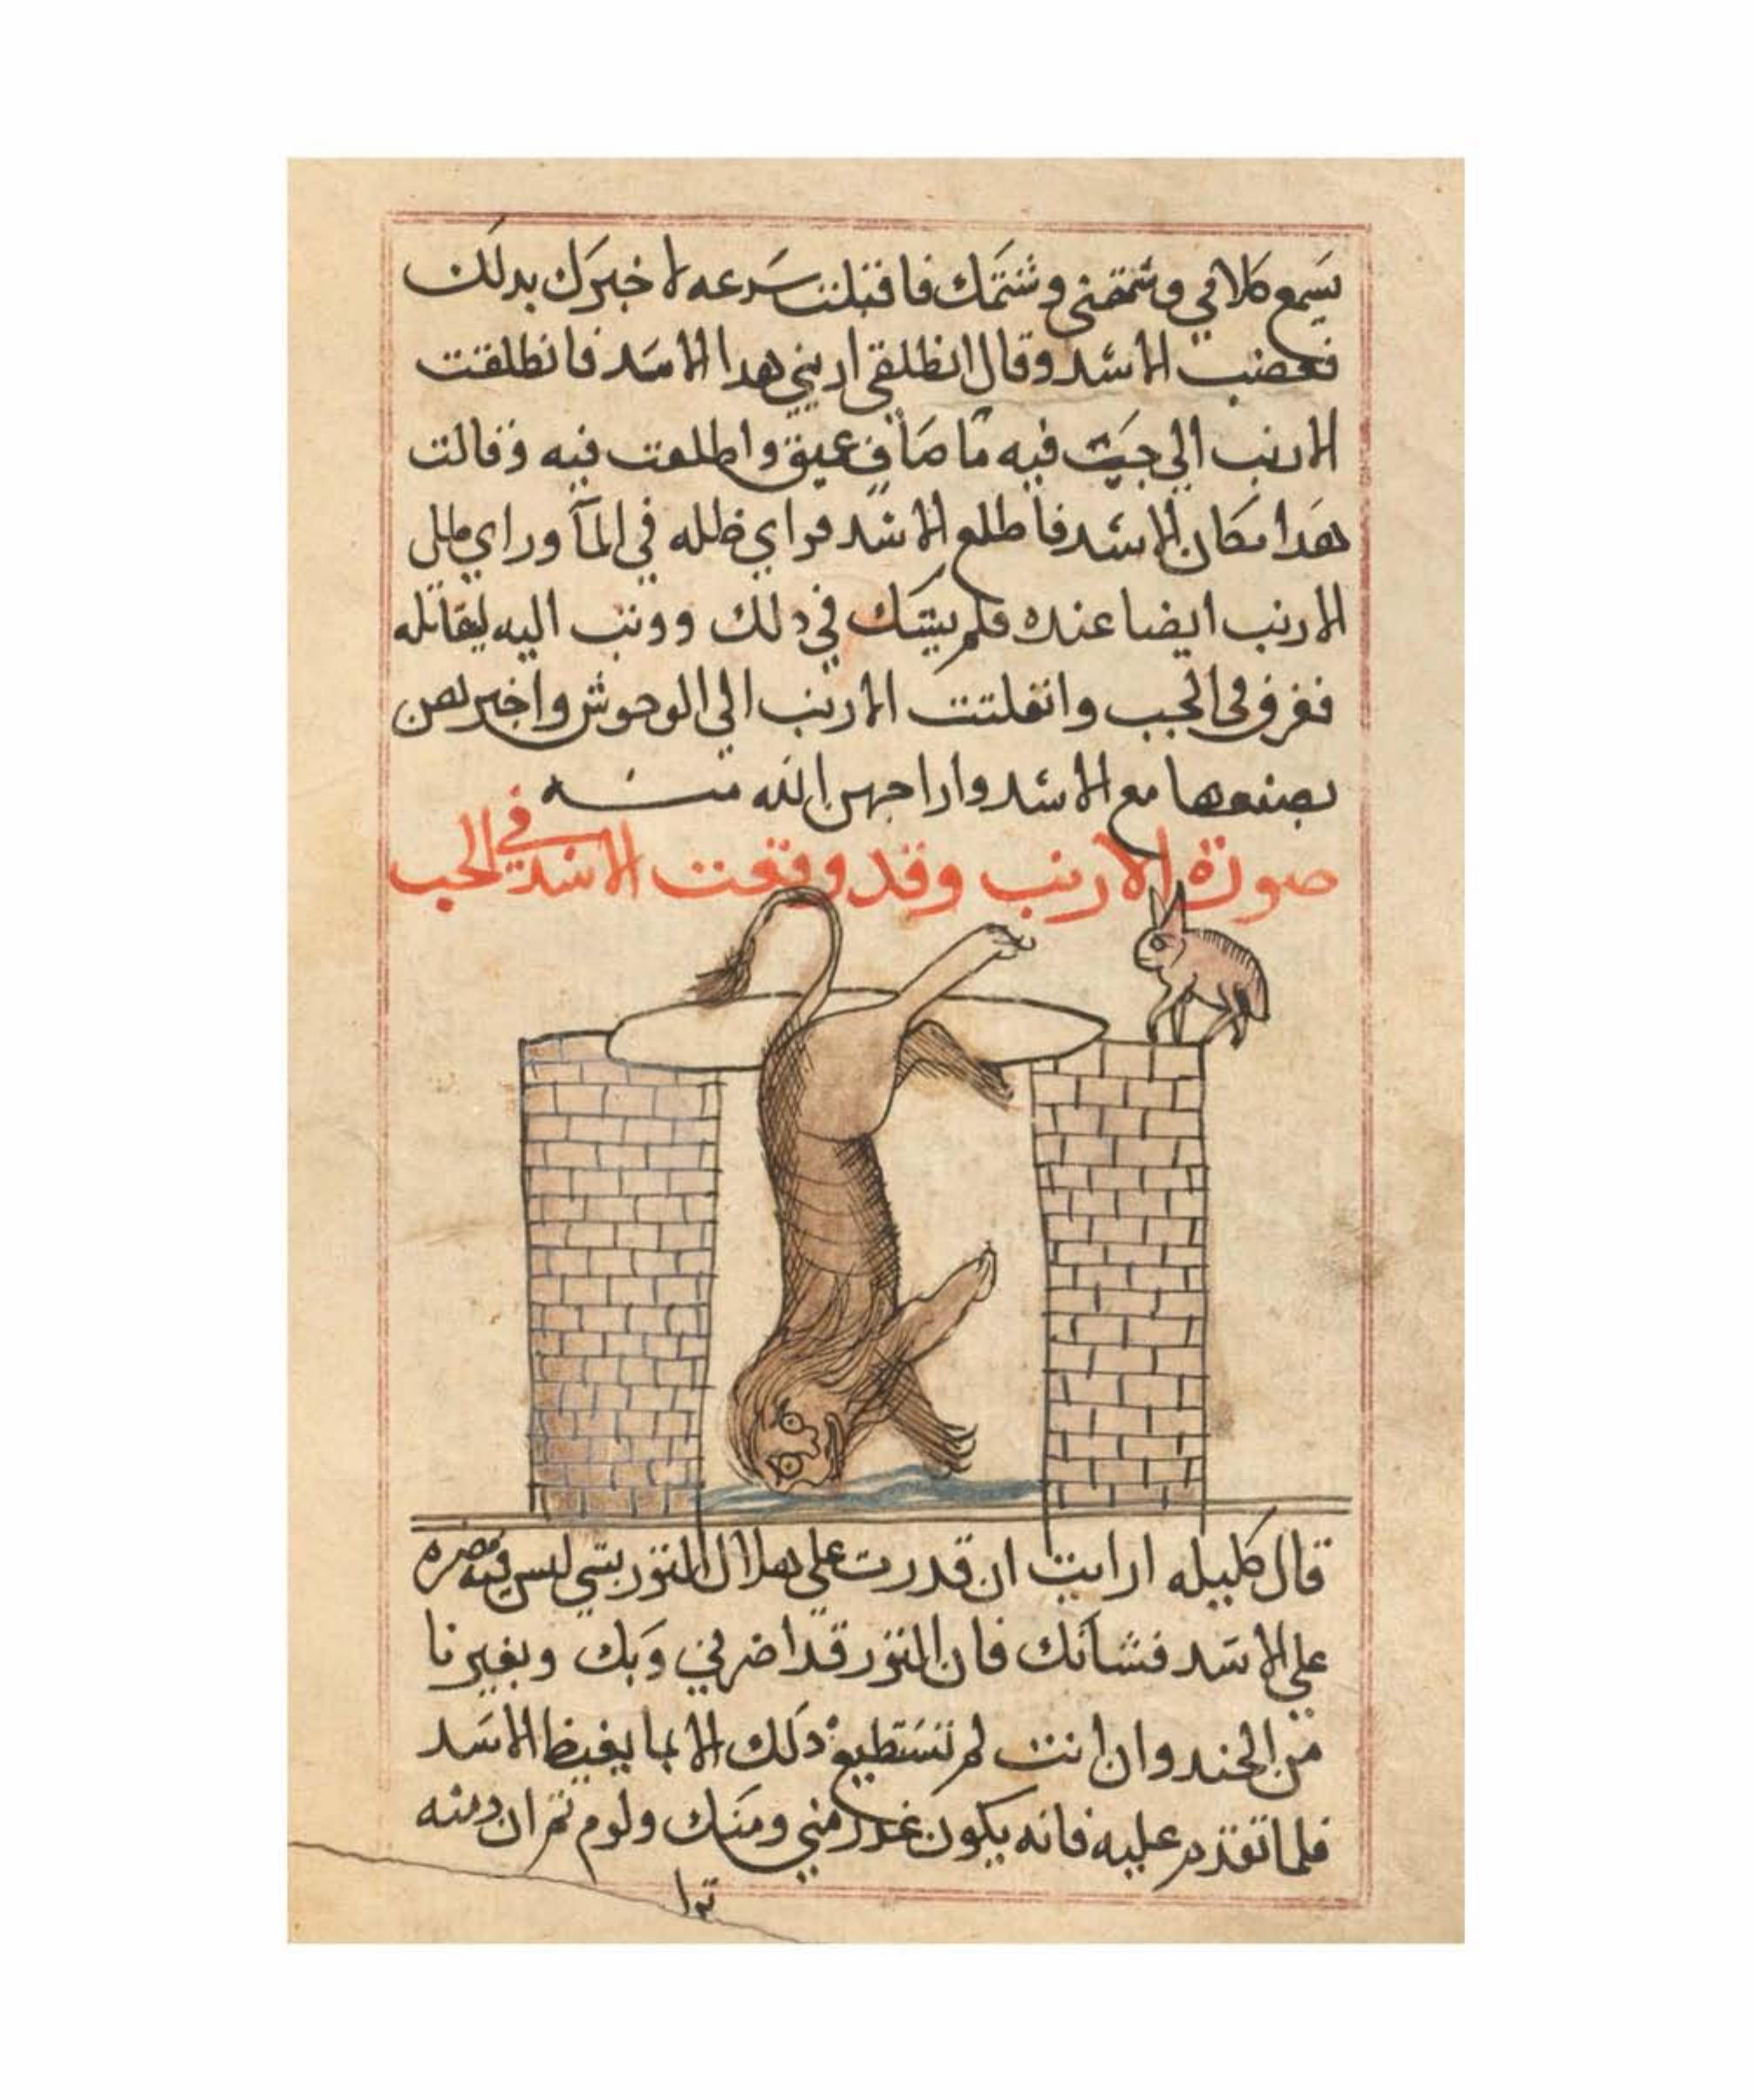 يسمع كلامي وشتمني وشتمك فاقبلت سرعه لا خبرك بدلك
فغضب الاسد وقال انطلقي اريني هدا الاسد فانطلقت
الارنب الي جب فيه ما صاف عميق واطلعت فيه وقالت
هدا مكان الاسد فاطلع الاسد فراي ظله في المآ وراي ظل
الارنب ايضا عنده فلم يشك في دلك ووثب اليه ليقاتله
فغرق في الجب وانفلتت الارنب الي الوحوش واخبرتهن
بصنعها مع الاسد واراحهن الله منه
صورة الارنب وقد وقعت الاسد في الجب
قال كليله ارايت ان قدرت علي هلاك الثور بشي ليس فيه مضره
علي الاسد فشانك فان الثور قد اضر بي وبك وبغيرنا
من الجند وان انت لم تستطيع دلك الا بما يغيظ الاسد
فلا تقدم عليه فانه يكون غدر مني ومنك ولوم ثم ان دمنه